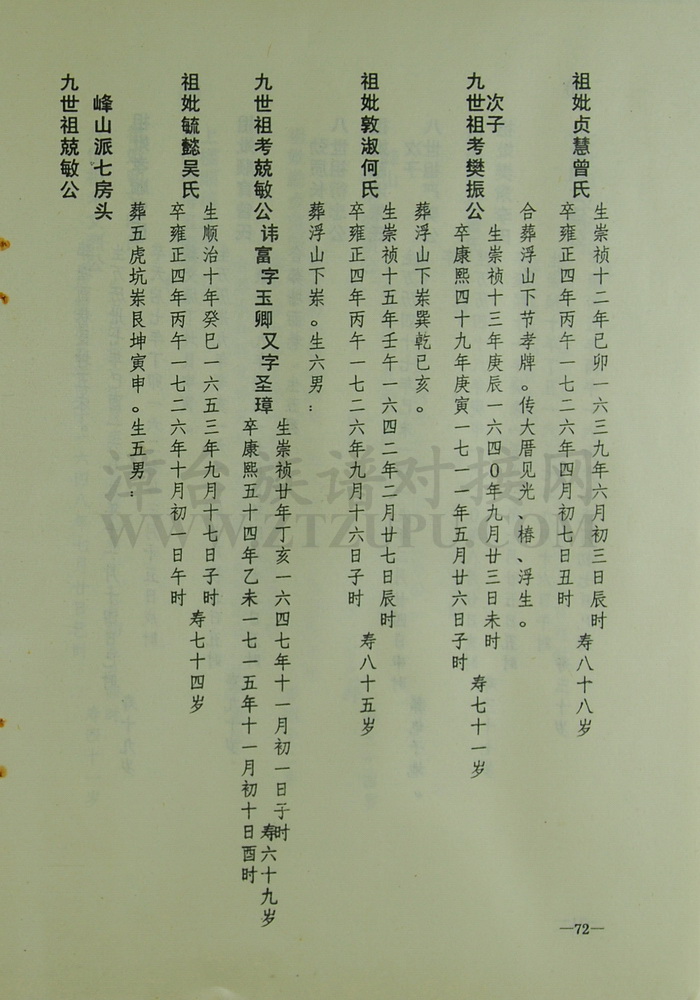 祖妣贞慧曾氏
生崇祯十二年己卯一六三九年六月初三日辰时
卒雍正四年丙午一七二六年四月初七日丑时
寿八十八岁
合葬浮山下节孝牌。传大厝见光、椿、浮生。
次子
九世祖考樊振公
生崇祯十三年庚辰一六四0年九月廿三日未时
卒康熙四十九年庚寅一七一一年五月廿六日子时
寿七十一岁
葬浮山下岽巽乾巳亥。
祖妣敦淑何氏
生崇祯十五年壬午一六四二年二月廿七日辰时
卒雍正四年丙午一七二六年九月十六日子时
寿八十五岁
葬浮山下岽。生六男：
九世祖考兢敏公讳富字玉卿又字圣璋
生崇祯廿年丁亥一六四七年十一月初一日子时
卒康熙五十四年乙未一七一五年十一月初十日酉时
寿六十九岁
祖妣毓懿吴氏
生顺治十年癸巳一六五三年九月十七日子时
卒雍正四年丙午一七二六年十月初一日午时
寿七十四岁
葬五虎坑岽艮坤寅申。生五男：
峰山派七房头
九世祖兢敏公
—72—
WWW.ZTZUPU.COM